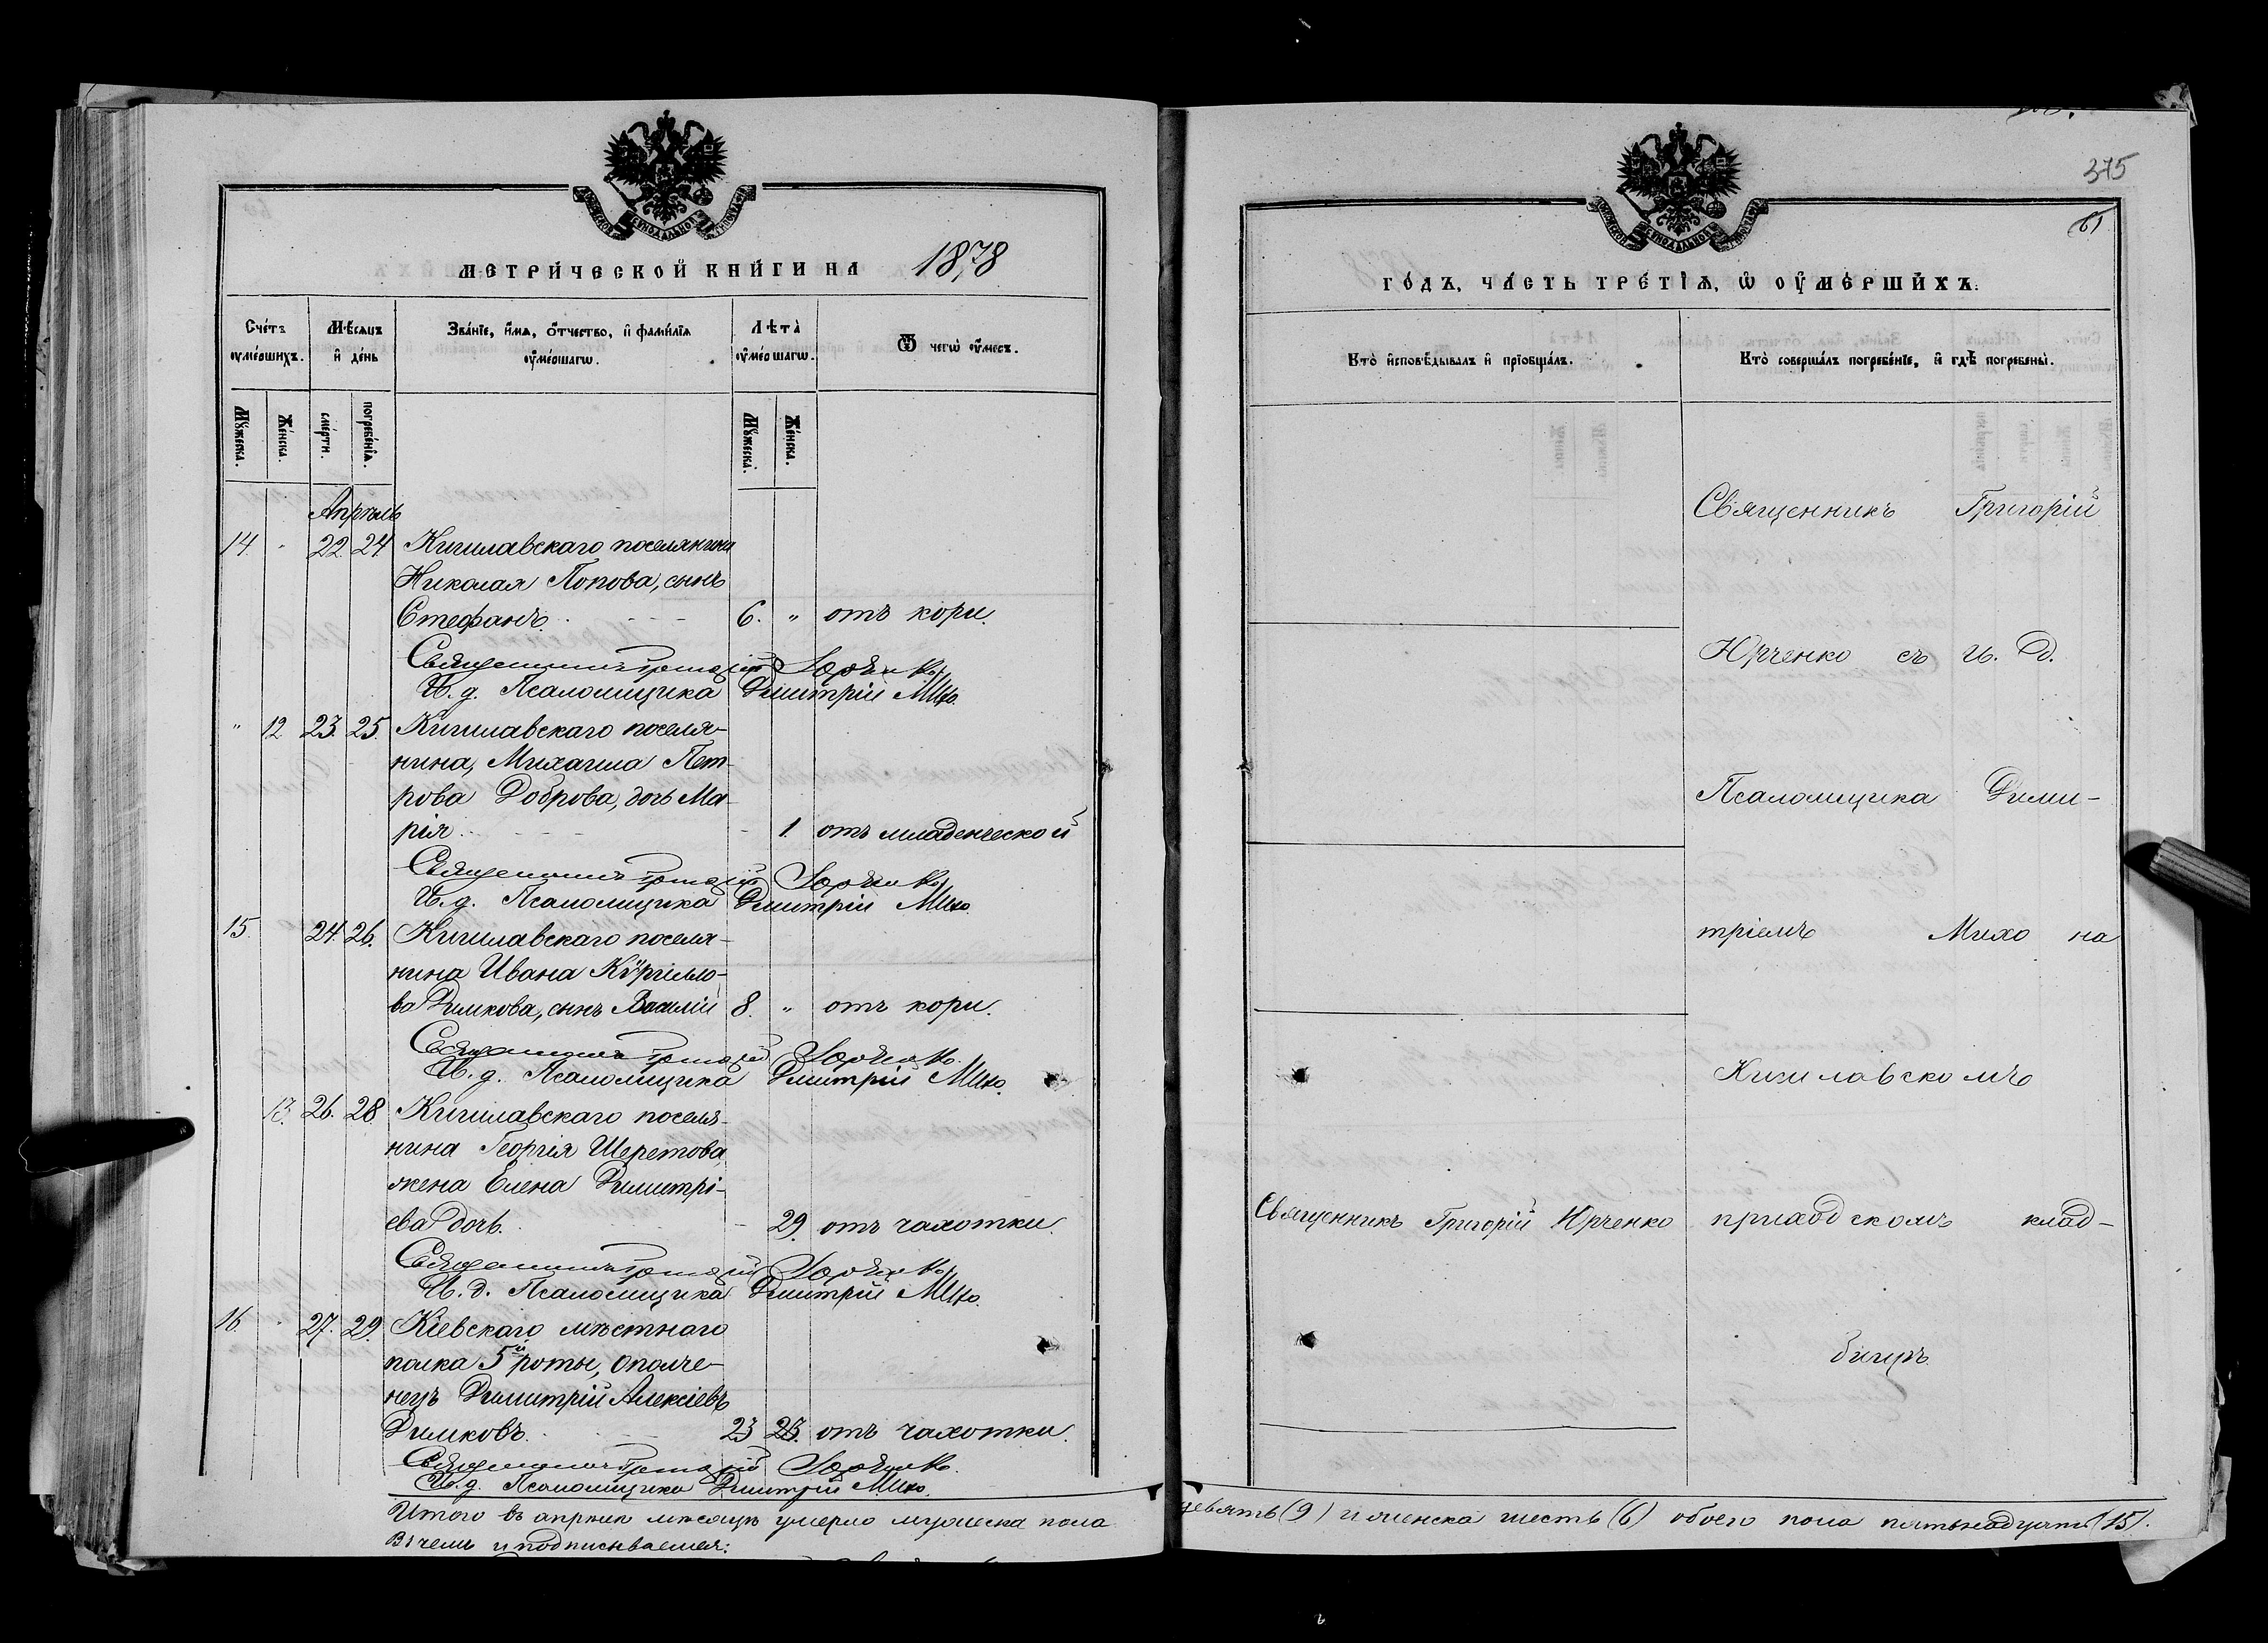 МЕТРИЧЕСКОЙ КНИГИ НА 1878
Счетъ умершихъ.
Мѣсяцъ и день
Званіе, имя, отчество, и фамилія умершагѡ.
Лѣта умершагѡ.
Ѿ чегѡ умеръ.
Мужеска.
Женска.
смерти.
погребенія.
Мужеска.
Женска.
Апрѣль
14. " 22 24 Кигилавскаго поселянина
Николая Попова, сынъ
Стефанъ. 6. " отъ кори.
Священникъ Григорій Юрченко
И. д. Псаломщика Димитрій Михо.
" 12 23. 25. Кигилавскаго поселя-
нина, Михаила Пет-
рова Доброва, дочь Ма-
рія 1. отъ младенческой
Священникъ Григорій Юрченко
И. д. Псаломщика Димитрій Михо.
15. 24. 26. Кигилавскаго поселя-
нина Ивана Кѵрилло-
ва Димкова, сынъ Василій 8. " отъ кори.
Священникъ Григорій Юрченко.
И. д. Псаломщика Димитрій Михо.
13. 26. 28. Кигилавскаго поселя-
нина Георгія Шеретова,
жена Елена Димитрі-
ева дочь. 29. отъ чахотки.
Священникъ Григорій Юрченко
И. д. Псаломщика Димитрій Михо.
16. " 27. 29. Кіевскаго мѣстнаго
полка 5й роты, ополче-
нецъ Димитрій Алексіевъ
Димковъ. 23 отъ чахотки.
Священникъ Григорій Юрченко.
И. д. Псаломщика Димитрій Михо.
Итого въ апрѣлѣ мѣсяцѣ умерло мужеска пола
В чемъ и подписываемся:
375
61
ГОДЪ, ЧАСТЬ ТРЕТІЯ, Ѡ ОУМЕРШИХЪ.
Кто исповѣдывалъ и пріобщалъ.
Кто совершалъ погребеніе, и гдѣ погребены.
Священникъ Григорій
Юрченко съ и. д.
Псаломщика Дими-
тріемъ Михо на
Кигилавскомъ
Священникъ Григорій Юрченко
приходскомъ клад-
бищѣ.
девять (9) и женска шесть (6) обоего пола пятьнадцать (15).